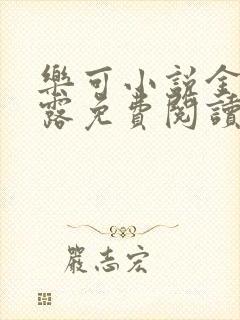 樂可小說全
露免費閱讀
嚴志宏